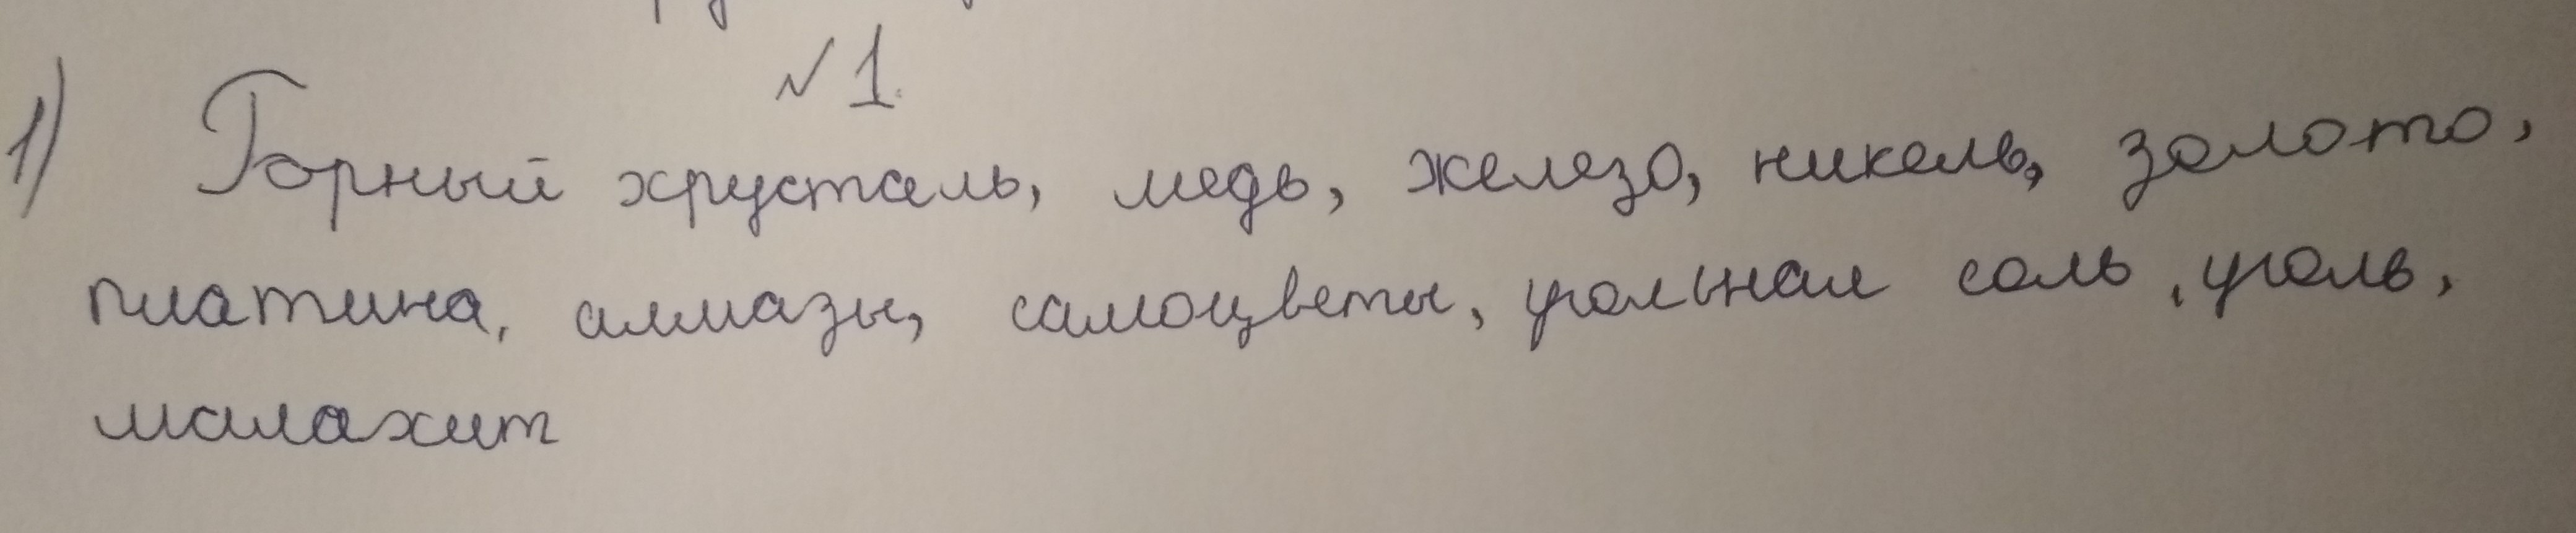 №1.
1) Горный хрусталь, медь, железо, никель, золото,
платина, алмазы, самоцветы, угольная соль, уголь,
малахит